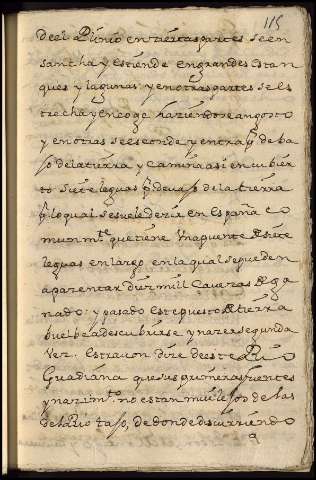 115
deel Plinio en ziertas partes se en
sancha y estiende en grandes estan
ques y lagunas: y en otras partes se es
trecha y encoge haziendose angosto
y en otras se esconde y entra p.r deba
jo de la tierra y camina así encubier
to siete leguas p.r devajo de la tierra
p.r lo qual se suele dezir en España co
munm.te que tiene Una puente de siete
leguas en largo, en la qual se pueden
apazentar diez mill Cavezas de ga
nado: y pasado este puesto de tierra
buelbe a descubrirse y nazer segunda
Vez. Estravon dize de este Rio
Guadiana que sus primeras fuentes
y nazim.to no estan mui lejos de las
del Rio tajo, de donde discurriendo